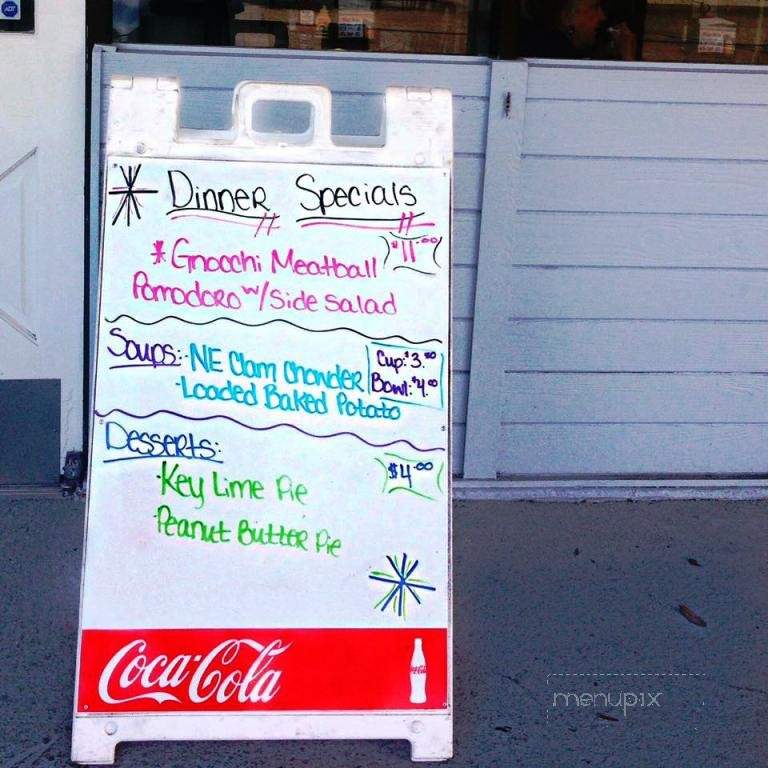 ADT
Dinner Specials
* Gnocchi Meatball $11.00
Pomodoro w/Side Salad
Soups: ·NE Clam Chowder Cup: $3.50
·Loaded Baked Potato Bowl: $4.00
Desserts: $4.00
·Key Lime Pie
·Peanut Butter Pie
Coca-Cola
menupix